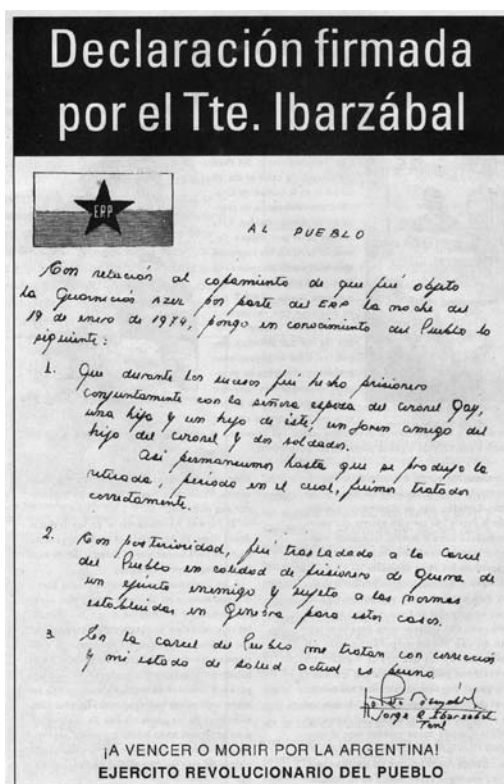 Declaración firmada
por el Tte. Ibarzábal
ERP
AL PUEBLO
Con relación al copamiento de que fué objeto
la Guarnición Azul por parte del ERP la noche del
19 de enero de 1974, pongo en conocimiento del Pueblo lo
siguiente:
1. Que durante los sucesos fui hecho prisionero
conjuntamente con la señora esposa del coronel Gay,
una hija y un hijo de éste, un joven amigo del
hijo del coronel y dos soldados.
Asi permanecimos hasta que se produjo la
retirada, período en el cual, fuimos tratados
correctamente.
2. Con posterioridad, fui trasladado a la Carcel
del Pueblo en calidad de prisionero de Guerra de
un ejército enemigo y sujeto a las normas
establecidas en Ginebra para estos casos.
3. En la carcel del Pueblo me tratan con corrección
y mi estado de salud actual es bueno
Jorge R Ibarzabal
¡A VENCER O MORIR POR LA ARGENTINA!
EJERCITO REVOLUCIONARIO DEL PUEBLO